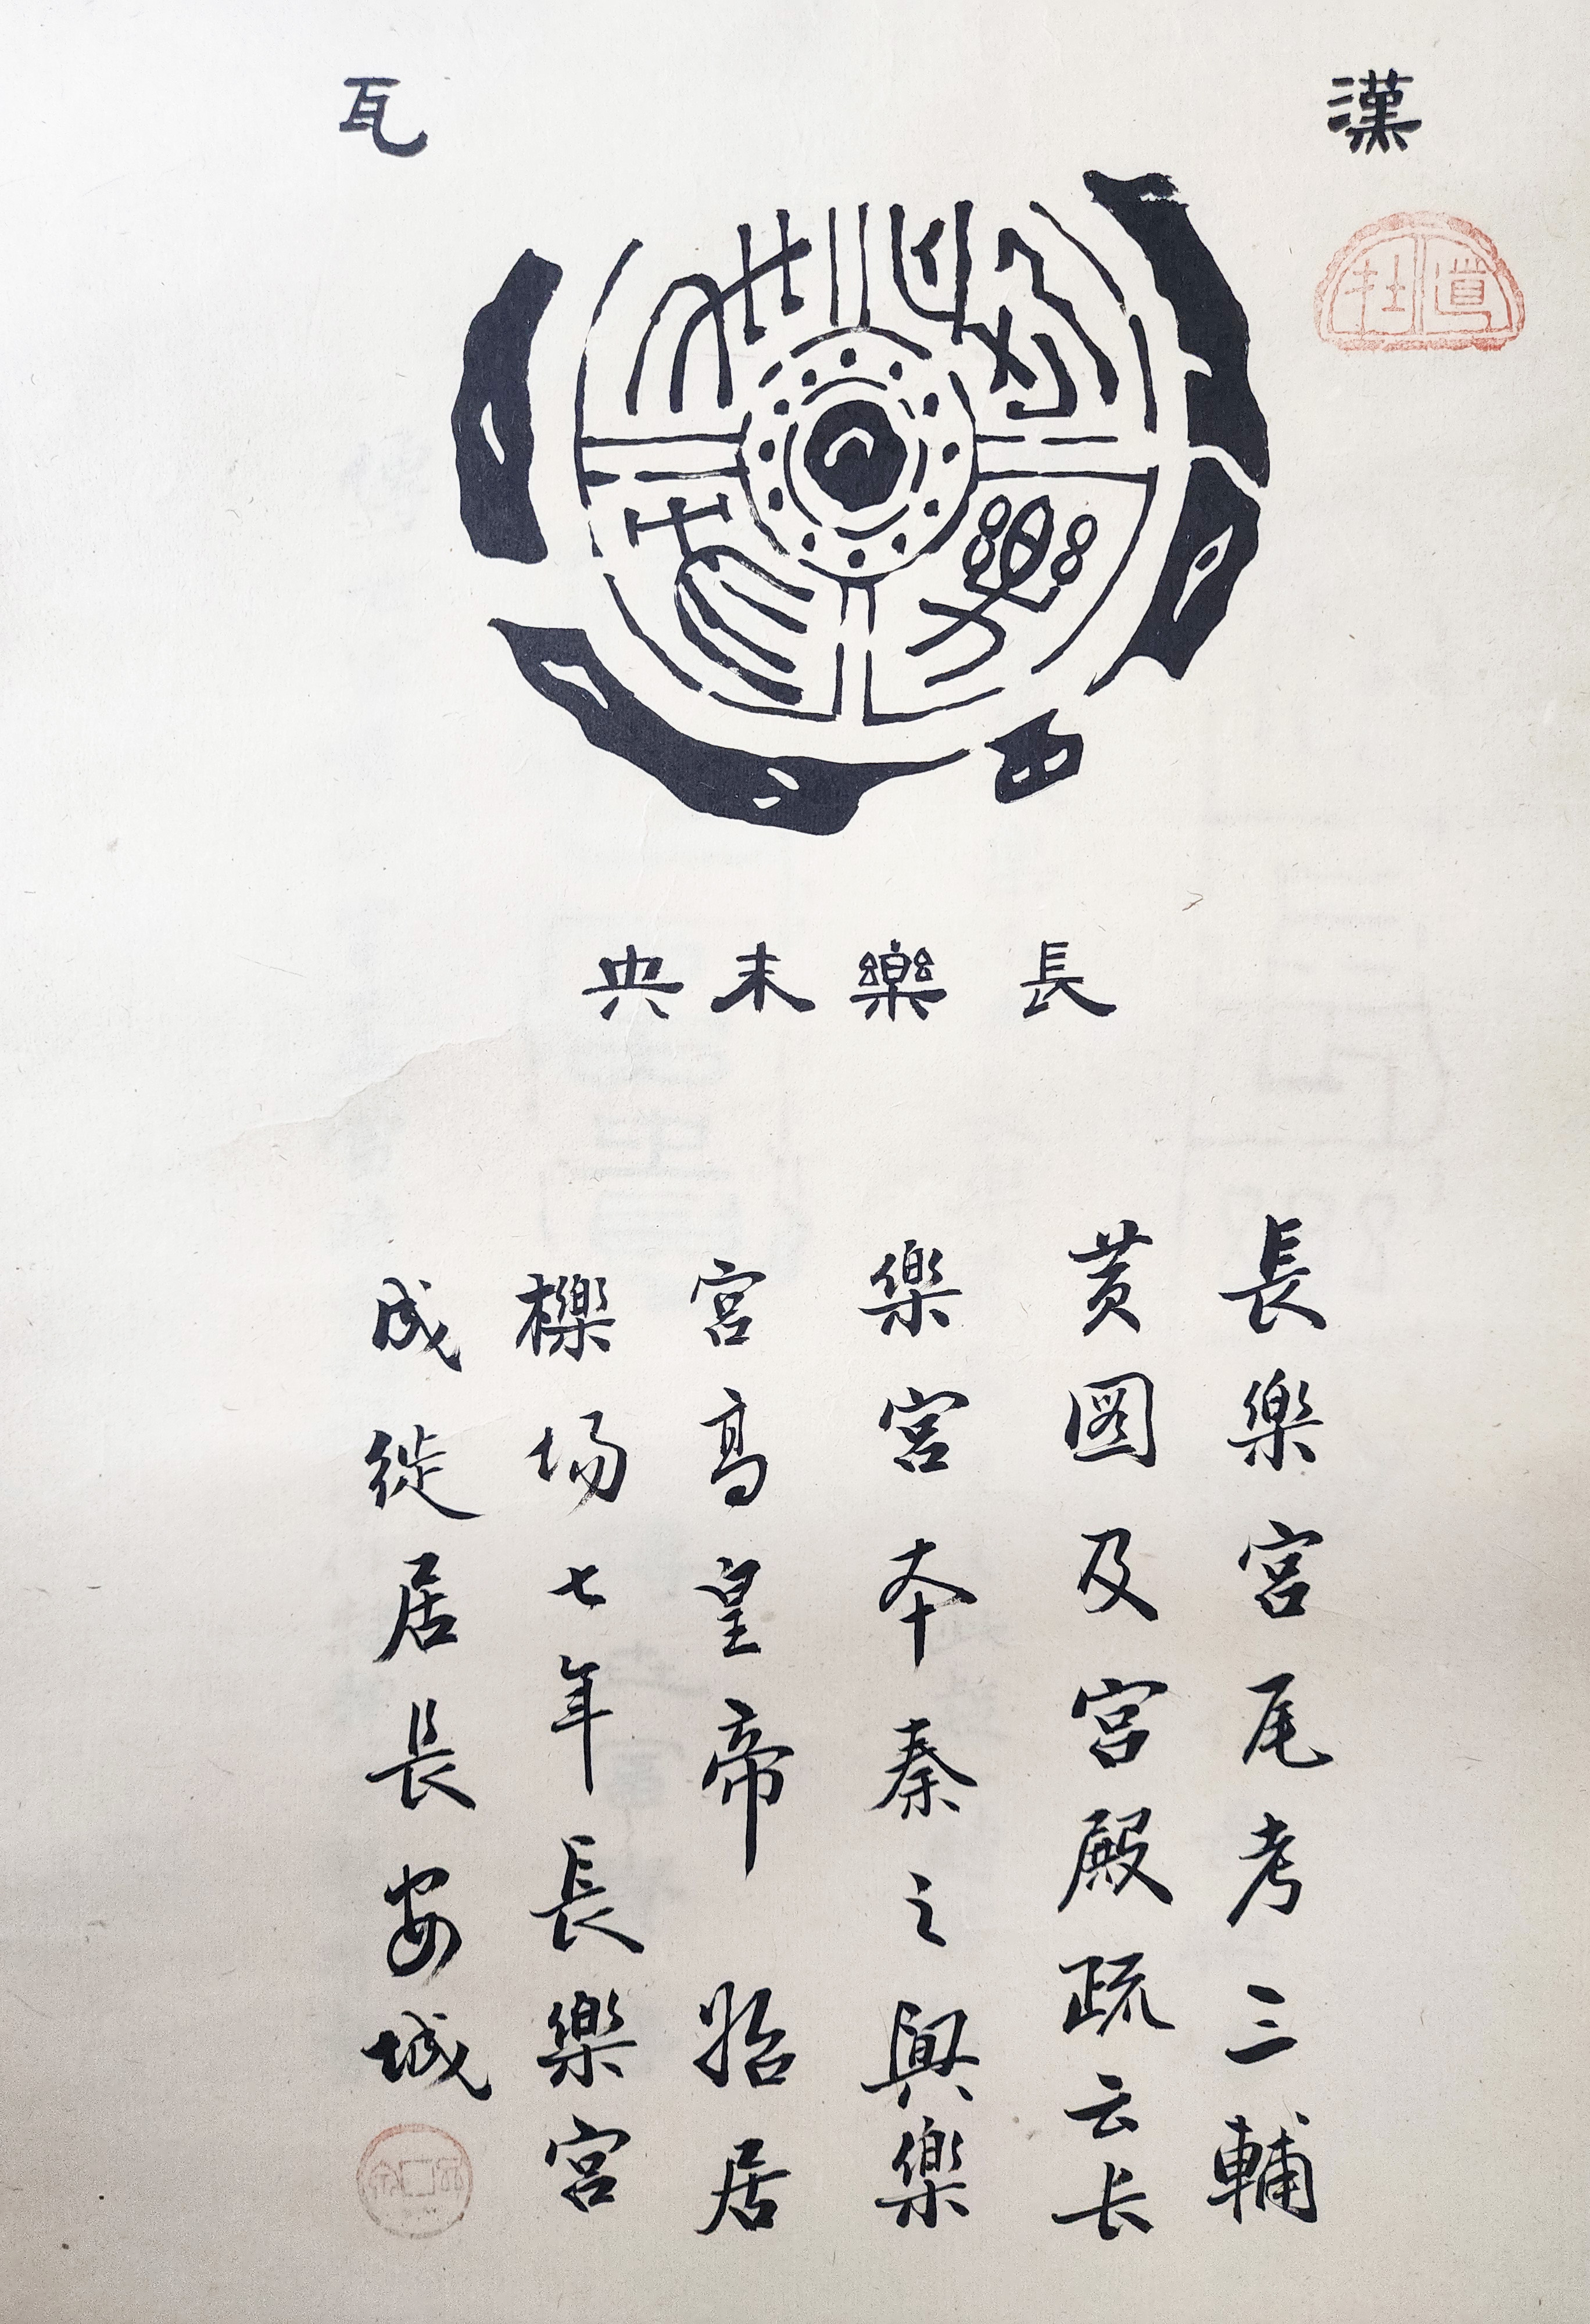 漢瓦
長樂未央
長樂宮尾考三輔
黄圖及宮殿疏云长
樂宮本秦之興樂
宮高皇帝始居
櫟场七年長樂宮
成徙居長安城